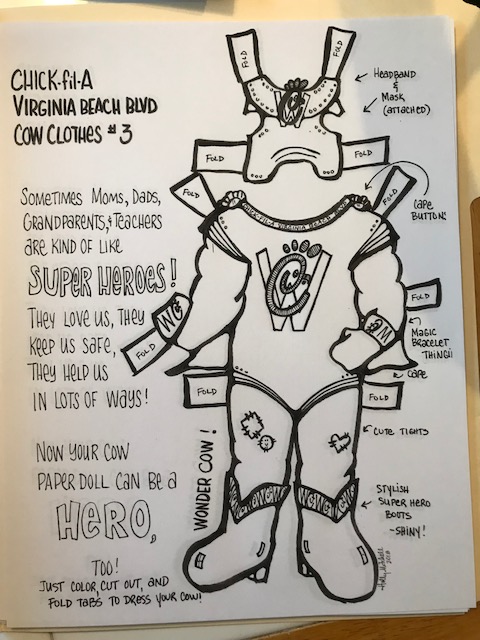 CHICK-fil-A
VIRGINIA BEACH BLVD
COW CLOTHES #3
SOMETIMES MOMS, DADS,
GRANDPARENTS, & TEACHERS
ARE KIND OF LIKE
SUPER HEROES!
THEY LOVE US, THEY
KEEP US SAFE,
THEY HELP US
IN LOTS OF WAYS!
NOW YOUR COW
PAPER DOLL CAN BE A
HERO,
TOO!
JUST COLOR, CUT OUT, AND
FOLD TABS TO DRESS YOUR COW!
FOLD
FOLD
HEADBAND
&
MASK
(ATTACHED)
FOLD
FOLD
FOLD
FOLD
CHICK-FIL-A VIRGINIA BEACH BLVD
CAPE
BUTTON
W
WC
FOLD
FOLD
MAGIC
BRACELET
THINGII
CAPE
FOLD
FOLD
CUTE TIGHTS
WONDER COW!
STYLISH
SUPER HERO
BOOTS
-SHINY!
Holly Mitchell